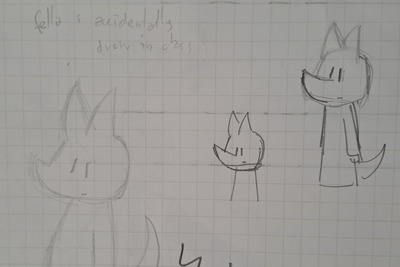 fella i accidentally
drew in class